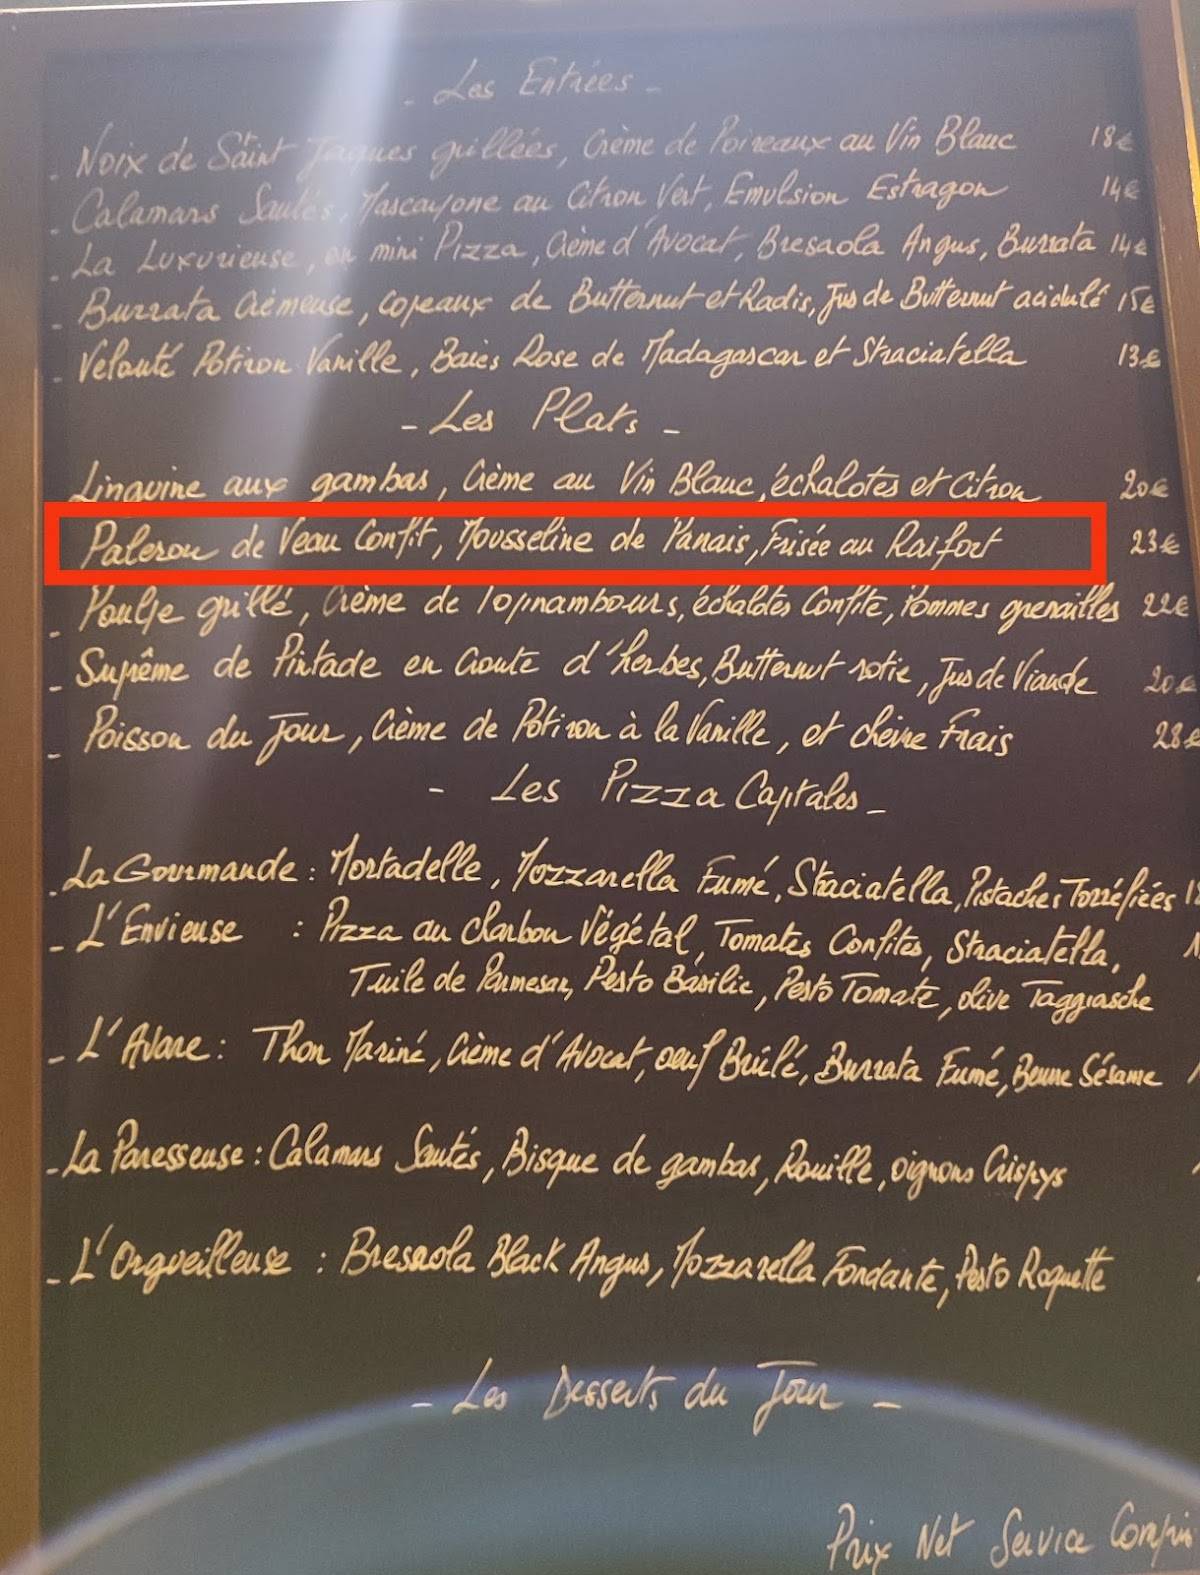 - Les Entrées -
. Noix de Saint Jaques grillées, Crème de Poireaux au Vin Blanc 18€
. Calamars Sautés, Mascarpone au Citron Vert, Emulsion Estragon 14€
. La Luxurieuse, en mini Pizza, Crème d'Avocat, Bresaola Angus, Burrata 14€
- Burrata Crémeuse, copeaux de Butternut et Radis, Jus de Butternut acidulé 15€
- Velouté Potiron Vanille, Baies Rose de Madagascar et Straciatella 13€
- Les Plats -
Linguine aux gambas, Crème au Vin Blanc, échalotes et Citron 20€
Paleron de Veau Confit, Mousseline de Panais, Frisée au Raifort 23€
- Poulpe grillé, Crème de Topinambours, échalotes Confite, Pommes grenailles 22€
- Suprême de Pintade en Croute d'herbes, Butternut rotie, Jus de Viande 20€
- Poisson du Jour, Crème de Potiron à la Vanille, et chèvre Frais 28€
- Les Pizza Capitales -
. La Gourmande : Mortadelle, Mozzarella Fumé, Straciatella, Pistaches Torréfiées
- L'Envieuse : Pizza au charbon Végétal, Tomates Confites, Straciatella,
Tuile de Parmesan, Pesto Basilic, Pesto Tomate, olive Taggiasche
- L'Avare : Thon Mariné, Crème d'Avocat, oeuf Brûlé, Burrata Fumé, Beurre Sésame
- La Paresseuse : Calamars Sautés, Bisque de gambas, Rouille, oignons Crispys
- L'Orgueilleuse : Bresaola Black Angus, Mozzarella Fondante, Pesto Roquette
- Les Desserts du Jour -
Prix Net Service Compris